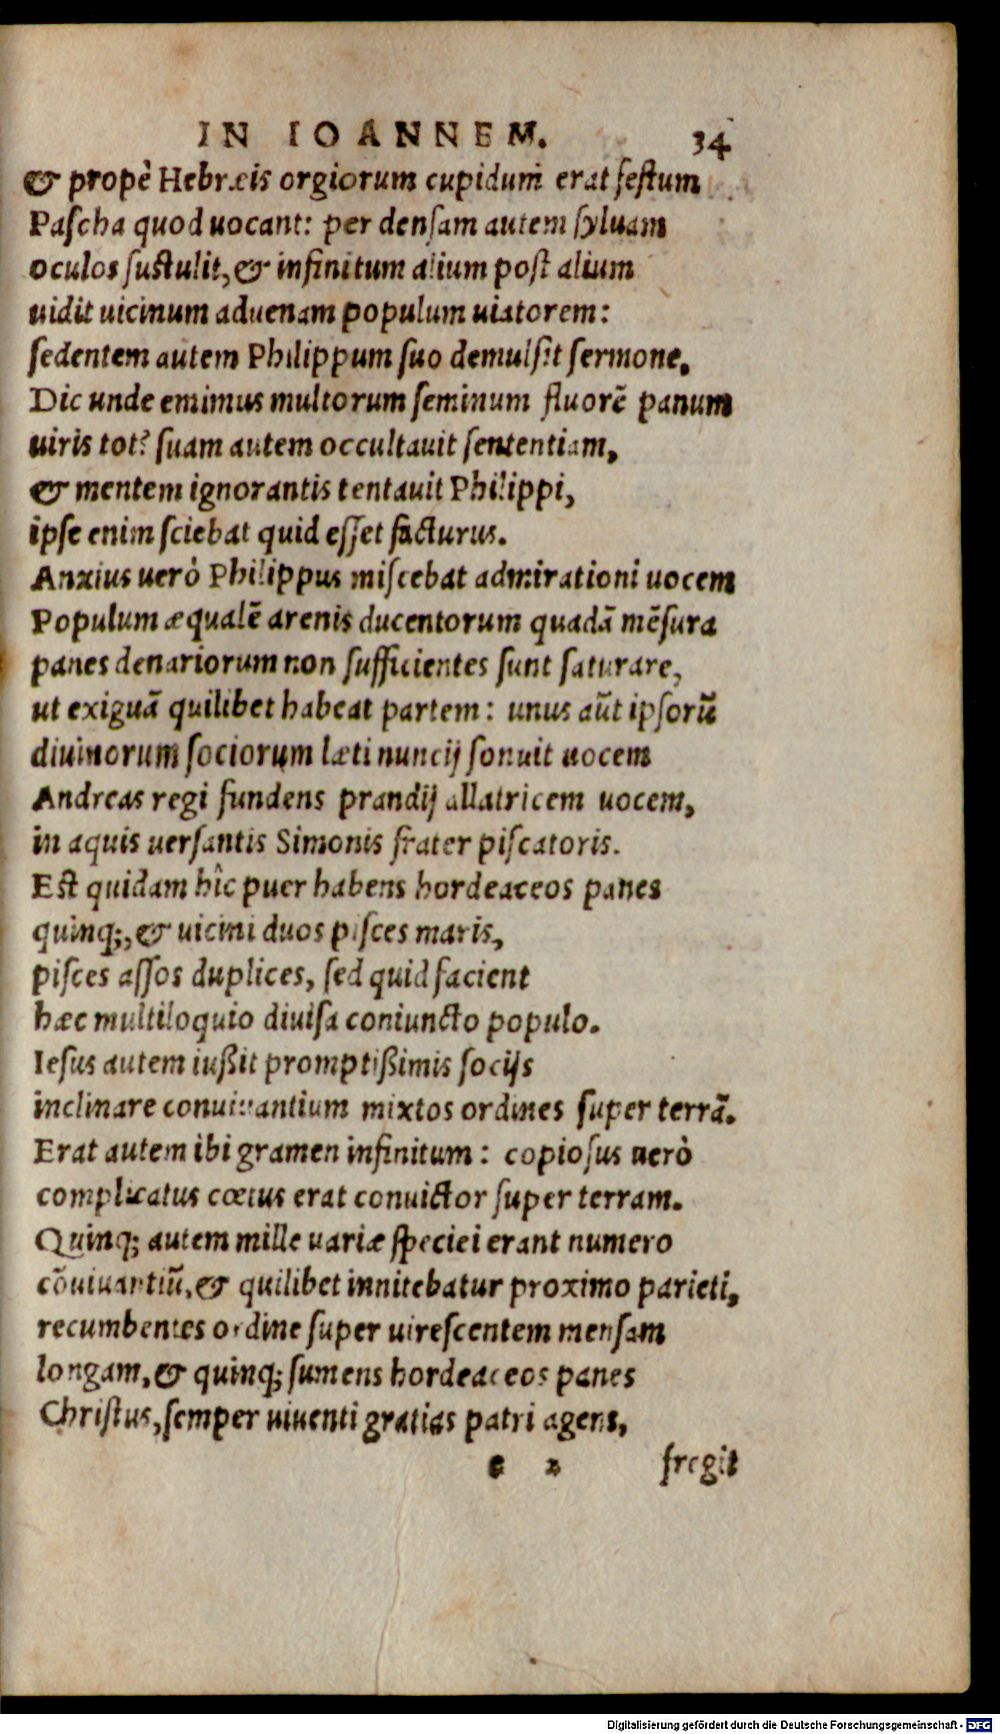 IN IOANNEM. 34
& propè Hebræis orgiorum cupidum erat festum
Pascha quod uocant: per densam autem syluam
oculos sustulit, & infinitum alium post alium
uidit uicinum aduenam populum uiatorem:
sedentem autem Philippum suo demulsit sermone.
Dic unde emimus multorum seminum fluorẽ panum
uiris tot? suam autem occultauit sententiam,
& mentem ignorantis tentauit Philippi,
ipse enim sciebat quid esset facturus.
Anxius uerò Philippus miscebat admirationi uocem
Populum æqualẽ arenis ducentorum quadã mẽsura
panes denariorum non sufficientes sunt saturare,
ut exiguã quilibet habeat partem: unus aũt ipsorũ
diuinorum sociorum læti nuncij sonuit uocem
Andreas regi fundens prandij allatricem uocem,
in aquis uersantis Simonis frater piscatoris.
Est quidam hîc puer habens hordeaceos panes
quinq;, & uicini duos pisces maris,
pisces assos duplices, sed quid facient
hæc multiloquio diuisa coniuncto populo.
Iesus autem iußit promptißimis socijs
inclinare conuiuantium mixtos ordines super terrã.
Erat autem ibi gramen infinitum: copiosus uerò
complicatus cœtus erat conuictor super terram.
Quinq; autem mille uariæ speciei erant numero
cõuiuantiũ, & quilibet innitebatur proximo parieti,
recumbentes ordine super uirescentem mensam
longam, & quinq; sumens hordeaceos panes
Christus, semper uiuenti gratias patri agens,
e 2 fregit
Digitalisierung gefördert durch die Deutsche Forschungsgemeinschaft - DFG